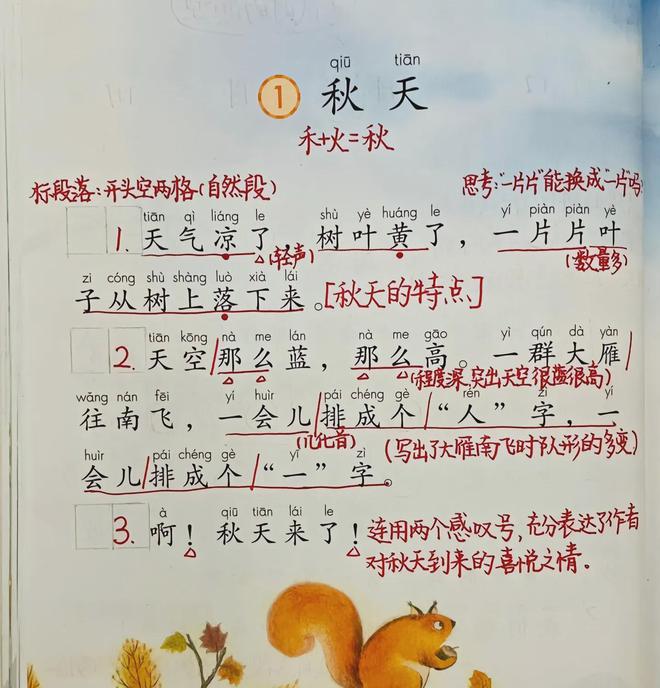 qiū tiān
1 秋天
禾+火=秋
标段落:开头空两格(自然段)
思考:“一片片”能换成“一片”吗
tiān qì liáng le shù yè huáng le yí piàn piàn yè
1. 天气凉了,树叶黄了,一片片叶
(轻声)
(数量多)
zi cóng shù shàng luò xià lái
子从树上落下来。[秋天的特点]
tiān kōng nà me lán nà me gāo yì qún dà yàn
2. 天空/那么蓝,那么高。一群大雁/
(程度深,突出天空很蓝很高)
wǎng nán fēi yí huìr pái chéng gè rén zì yí
往南飞,一会儿/排成个/“人”字,一
(儿化音)
(写出了大雁南飞时队形的多变)
huìr pái chéng gè yī zì
会儿/排成个/“一”字。
à qiū tiān lái le
3. 啊!秋天来了!
连用两个感叹号,充分表达了作者
对秋天到来的喜悦之情。